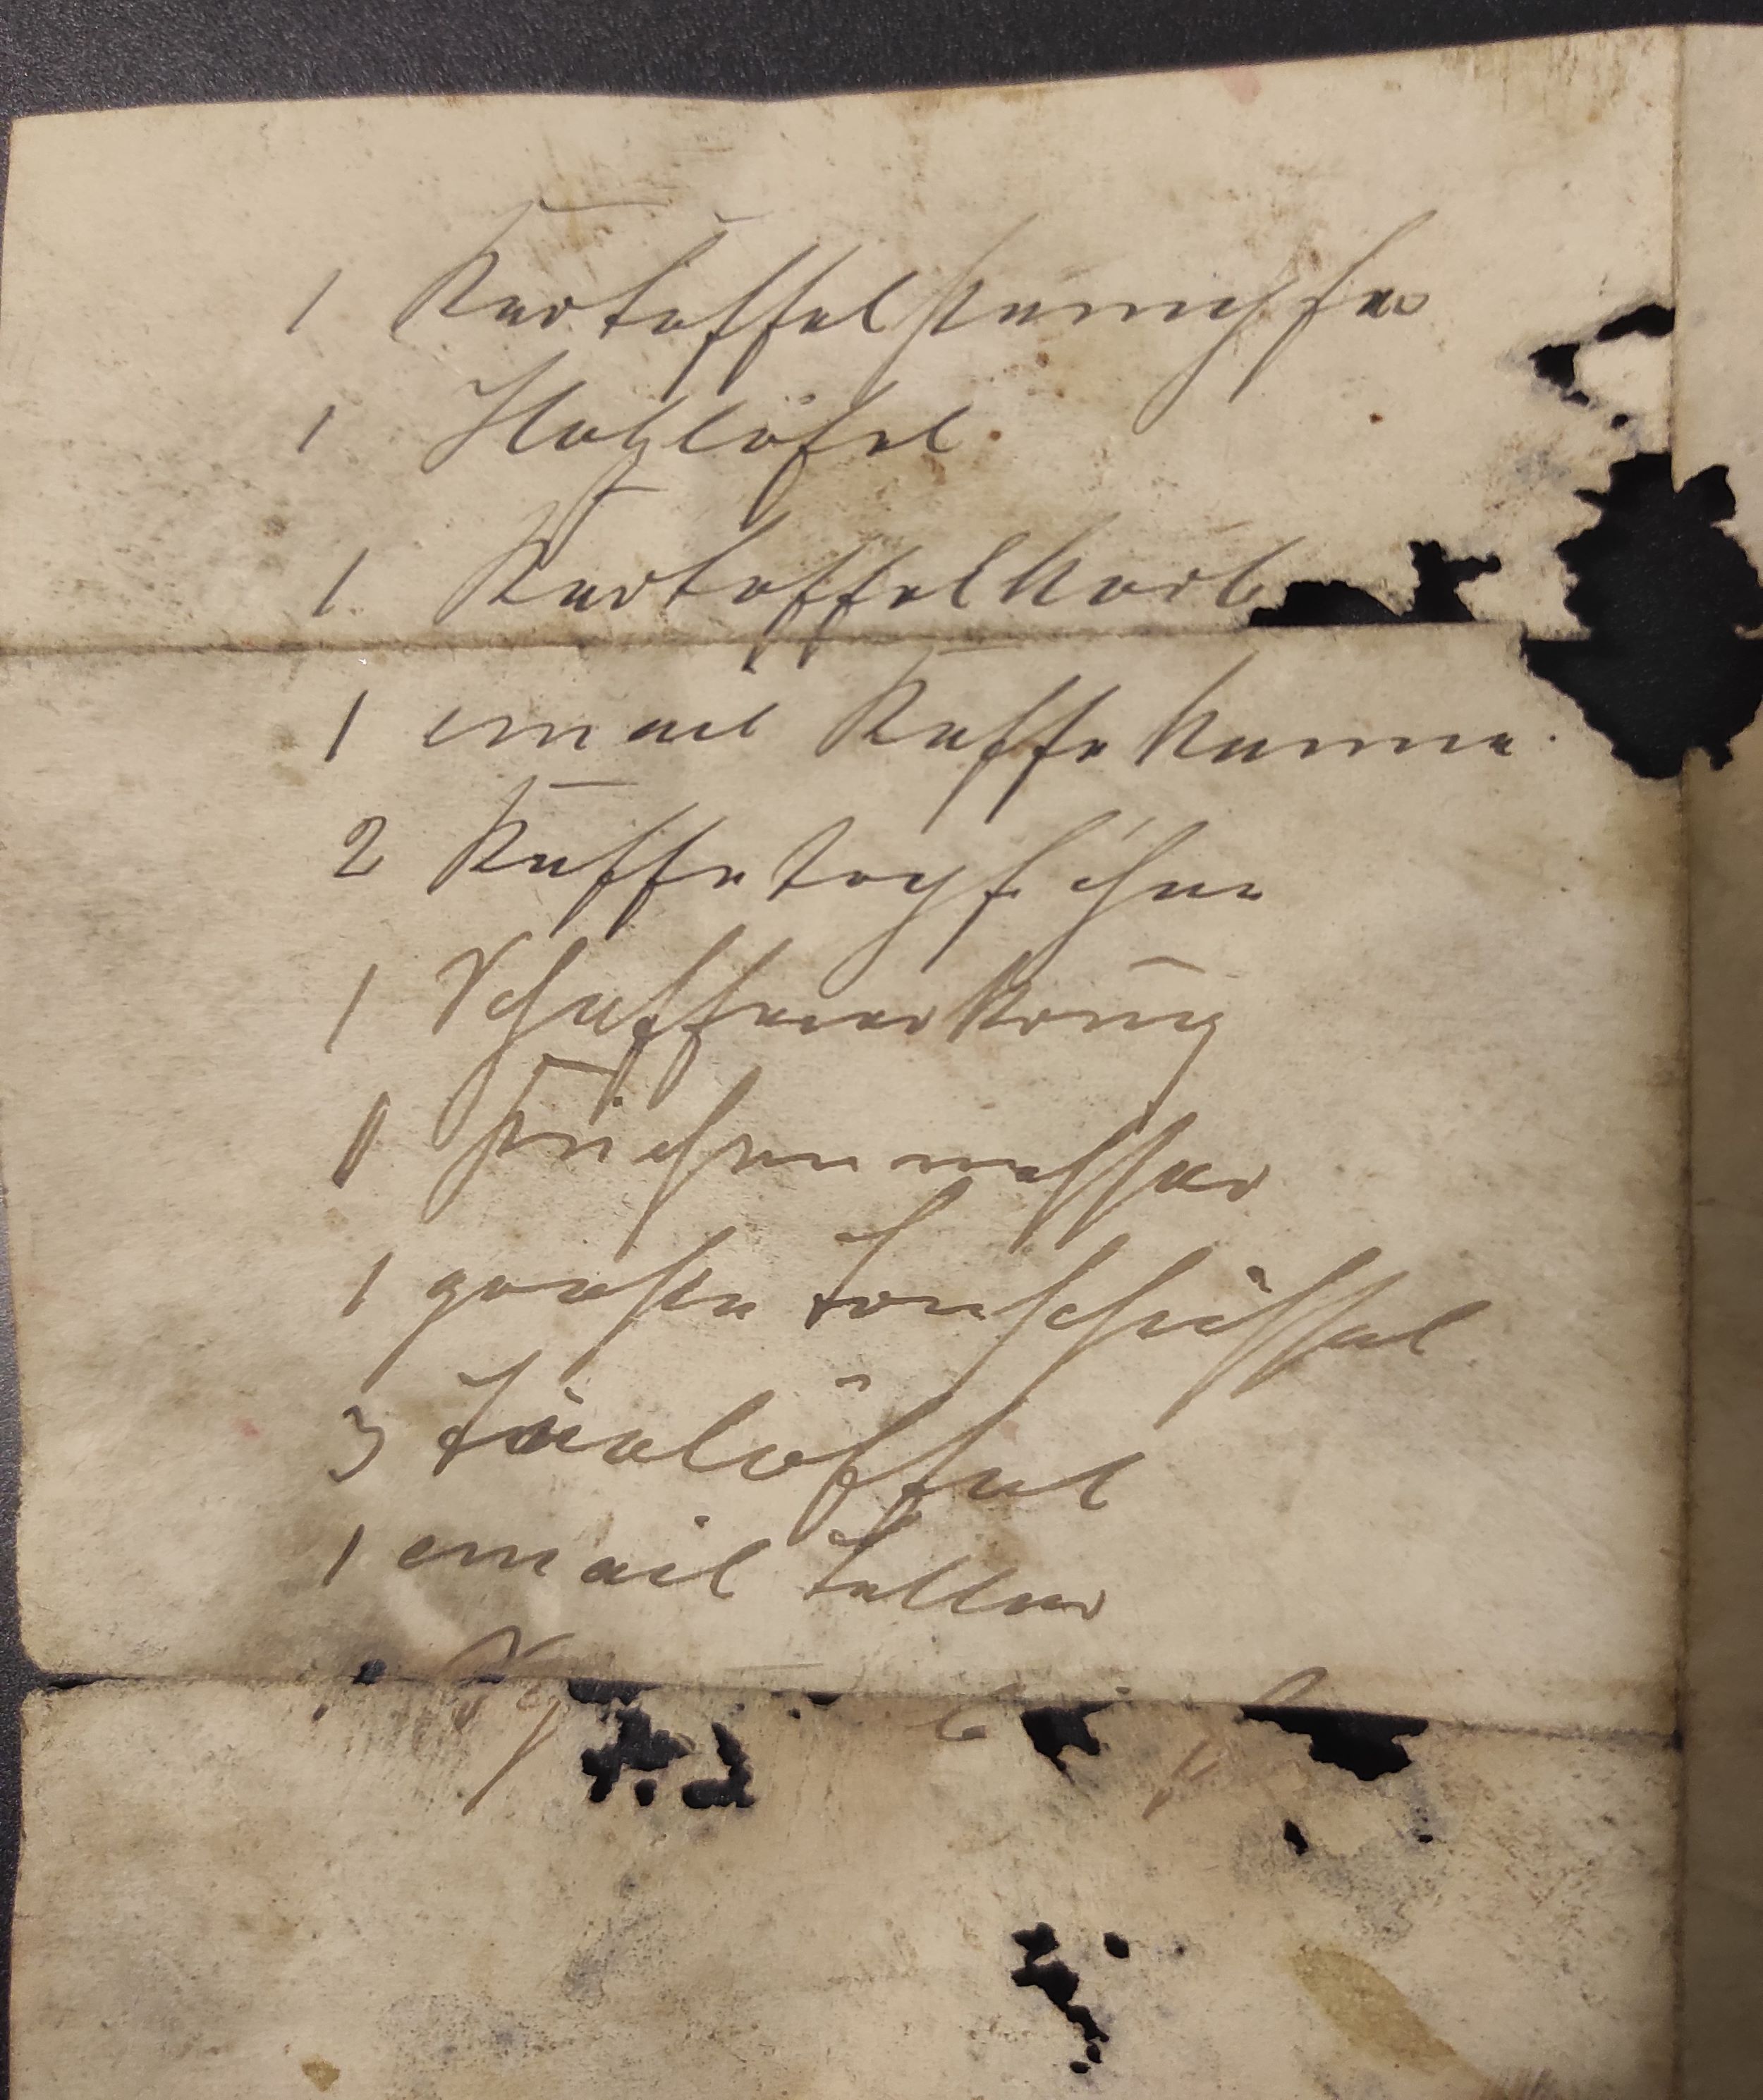 1 Kartoffelstampfer
1 Holzlöfel
1 Kartoffelkorb
1 email Kaffekanne
2 Kaffetopfchen
1
1 Küchenmesser
1 große Tonschüssel
3 löffel
1 email Teller